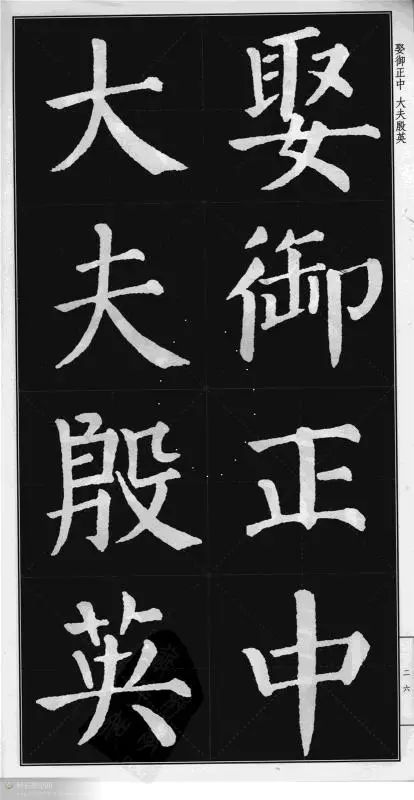 娶御正中
大夫殷英
娶御正中 大夫殷英
二六